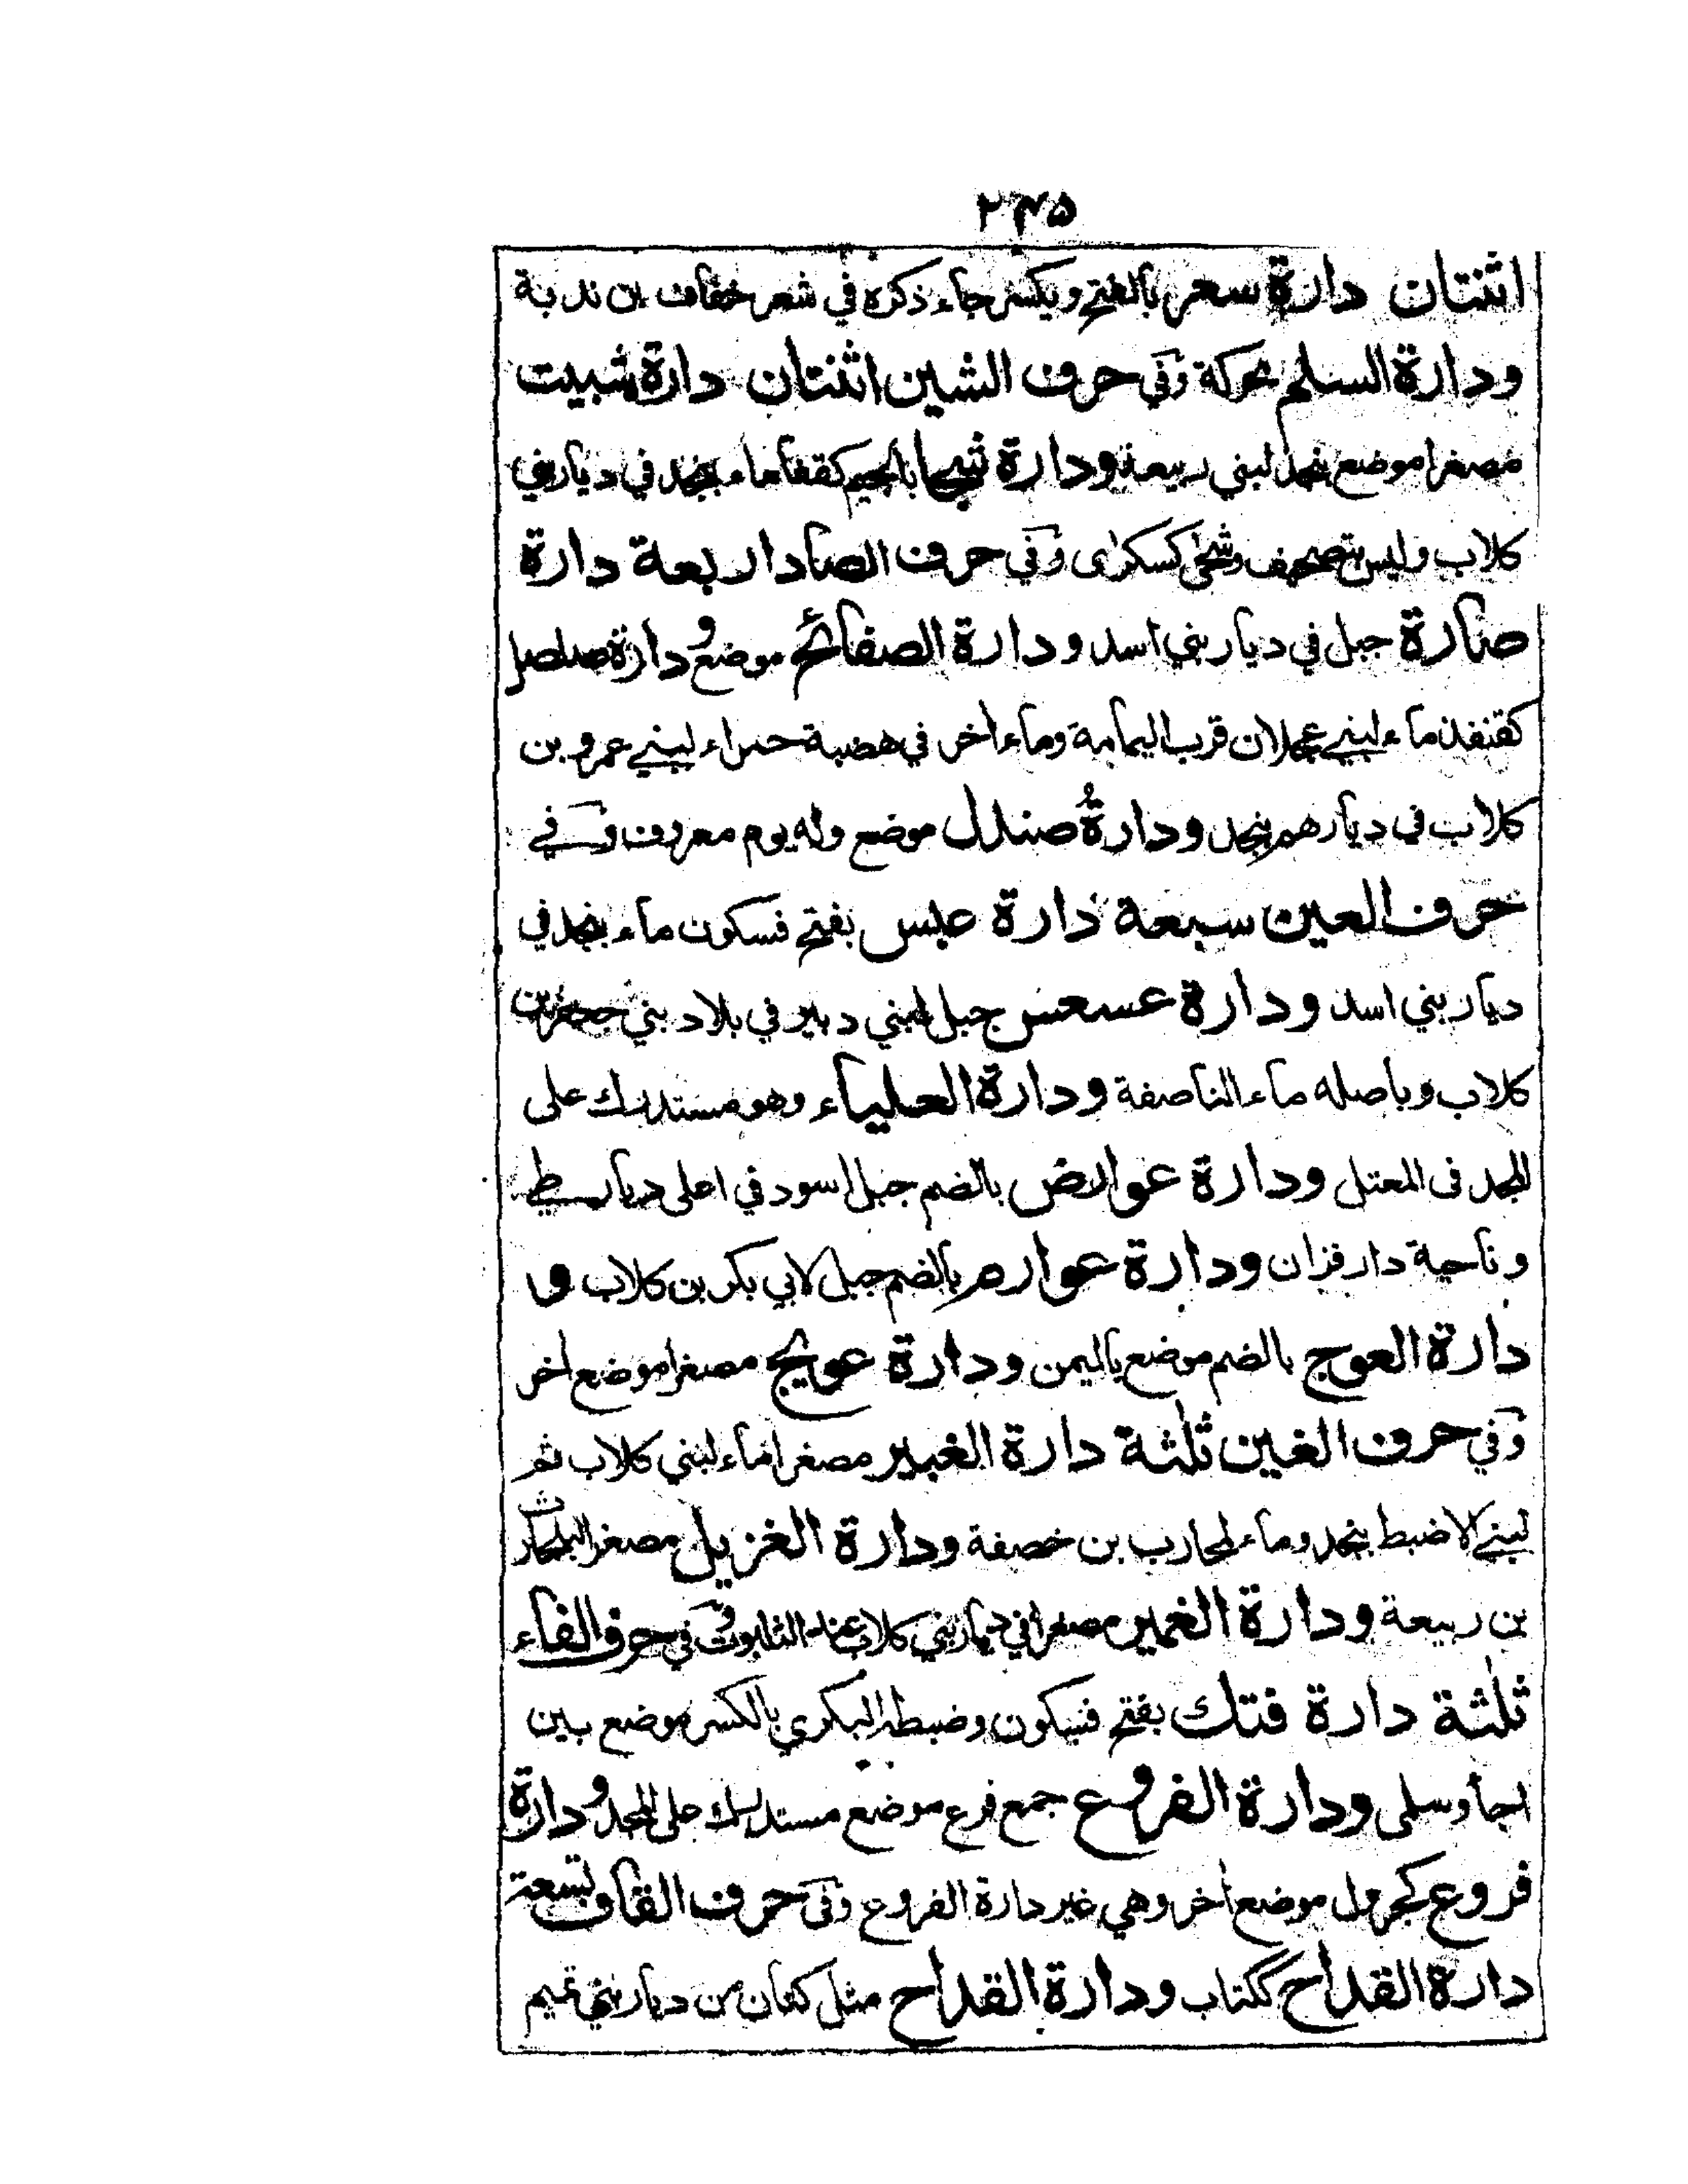 ٢٣٥
اثنتان دارة سعر بالفتح ويكسر جاء ذكره في شعر خفاف بن ندبة
ودارة السلم محركة وفي حرف الشين اثنتان دارة شبيث
مصغرا موضع بنجد لبني ربيعة ودارة شجا بالجيم كقفا ماء بنجد في ديار بني
كلاب وليس بتصحيف وشحى كسكرى وفي حرف الصاد اربعة دارة
صارة جبل في ديار بني اسد ودارة الصفائح موضع ودارة صلصل
كقنفذ ماء لبني عجلان قرب اليمامة وماء اخر في هضبة حمراء لبني عمرو بن
كلاب في ديارهم بنجد ودارة صندل موضع وله يوم معروف وفي
حرف العين سبعة دارة عبس بفتح فسكون ماء بنجد في
ديار بني اسد ودارة عسعس جبل لبني دبير في بلاد بني جعفر بن
كلاب وباصله ماء الناصفة ودارة العلياء وهو مستدرك على
المجد في المعتل ودارة عوارض بالضم جبل اسود في اعلى ديار طي
وناحية دار فزان ودارة عوارم بالضم جبل لابي بكر بن كلاب و
دارة العوج بالضم موضع باليمن ودارة عويج مصغرا موضع اخر
وفي حرف الغين ثلثة دارة الغبير مصغرا ماء لبني كلاب ثم
لبني الاضبط بنجد وماء لمحارب بن خصفة ودارة الغزيل مصغرا لبلحارث
بن ربيعة ودارة الغمير مصغرا في ديار بني كلاب عند الثلبوت وفي حرف الفاء
ثلثة دارة فتك بفتح فسكون وضبطه البكري بالكسر موضع بين
اجأ وسلمى ودارة الفروع جمع فرع موضع مستدرك على المجد ودارة
فروع كجرول موضع اخر وهي غير دارة الفروع وفي حرف القاف تسعة
دارة القداح ككتاب ودارة القداح مثل كتان من ديار بني تميم